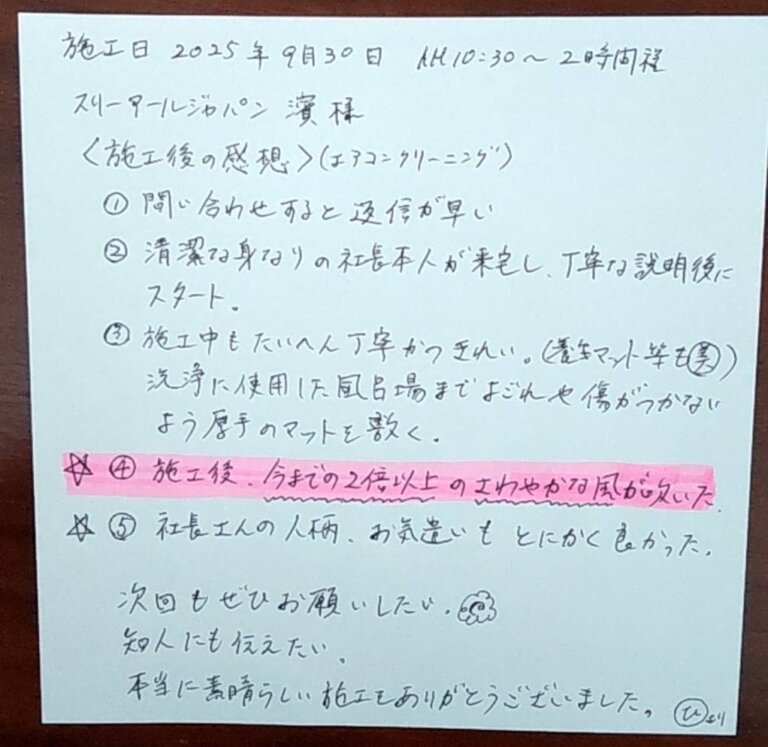 施工日 2025年9月30日 AM10:30～2時間程
スリーアールジャパン 濱様
〈施工後の感想〉(エアコンクリーニング)
① 問い合わせすると返信が早い
② 清潔な身なりの社長本人が来宅し、丁寧な説明後に
スタート。
③ 施工中もたいへん丁寧かつきれい。(養生マット等も)
洗浄に使用した風呂場までよごれや傷がつかない
よう厚手のマットを敷く。
☆ ④ 施工後、今までの2倍以上のさわやかな風が吹いた.
☆ ⑤ 社長さんの人柄、お気遣いもとにかく良かった.
次回もぜひお願いしたい.
知人にも伝えたい.
本当に素晴らしい施工をありがとうございました。 ひより